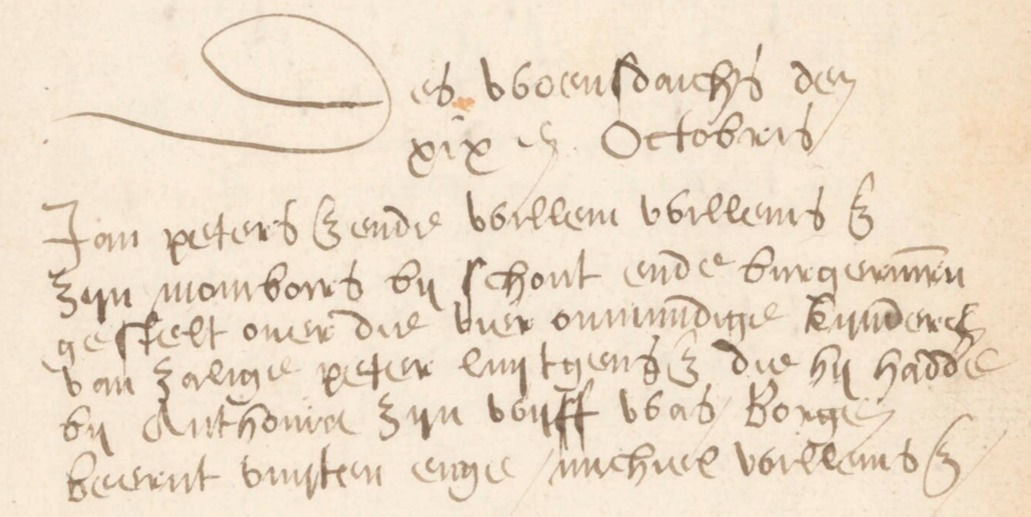 Des vvoensdaichs den
xixen Octobris
Jan peters z ende vvillem vvillems z
zijn momboirs bij schout ende burgermrn
gestelt over die vier onmundige kijnderen
van zalige peter luijtgens z die hij hadde
bij Anthonia zijn vvijff vvas Borge
beernt vuijten enge michiel vvillems z